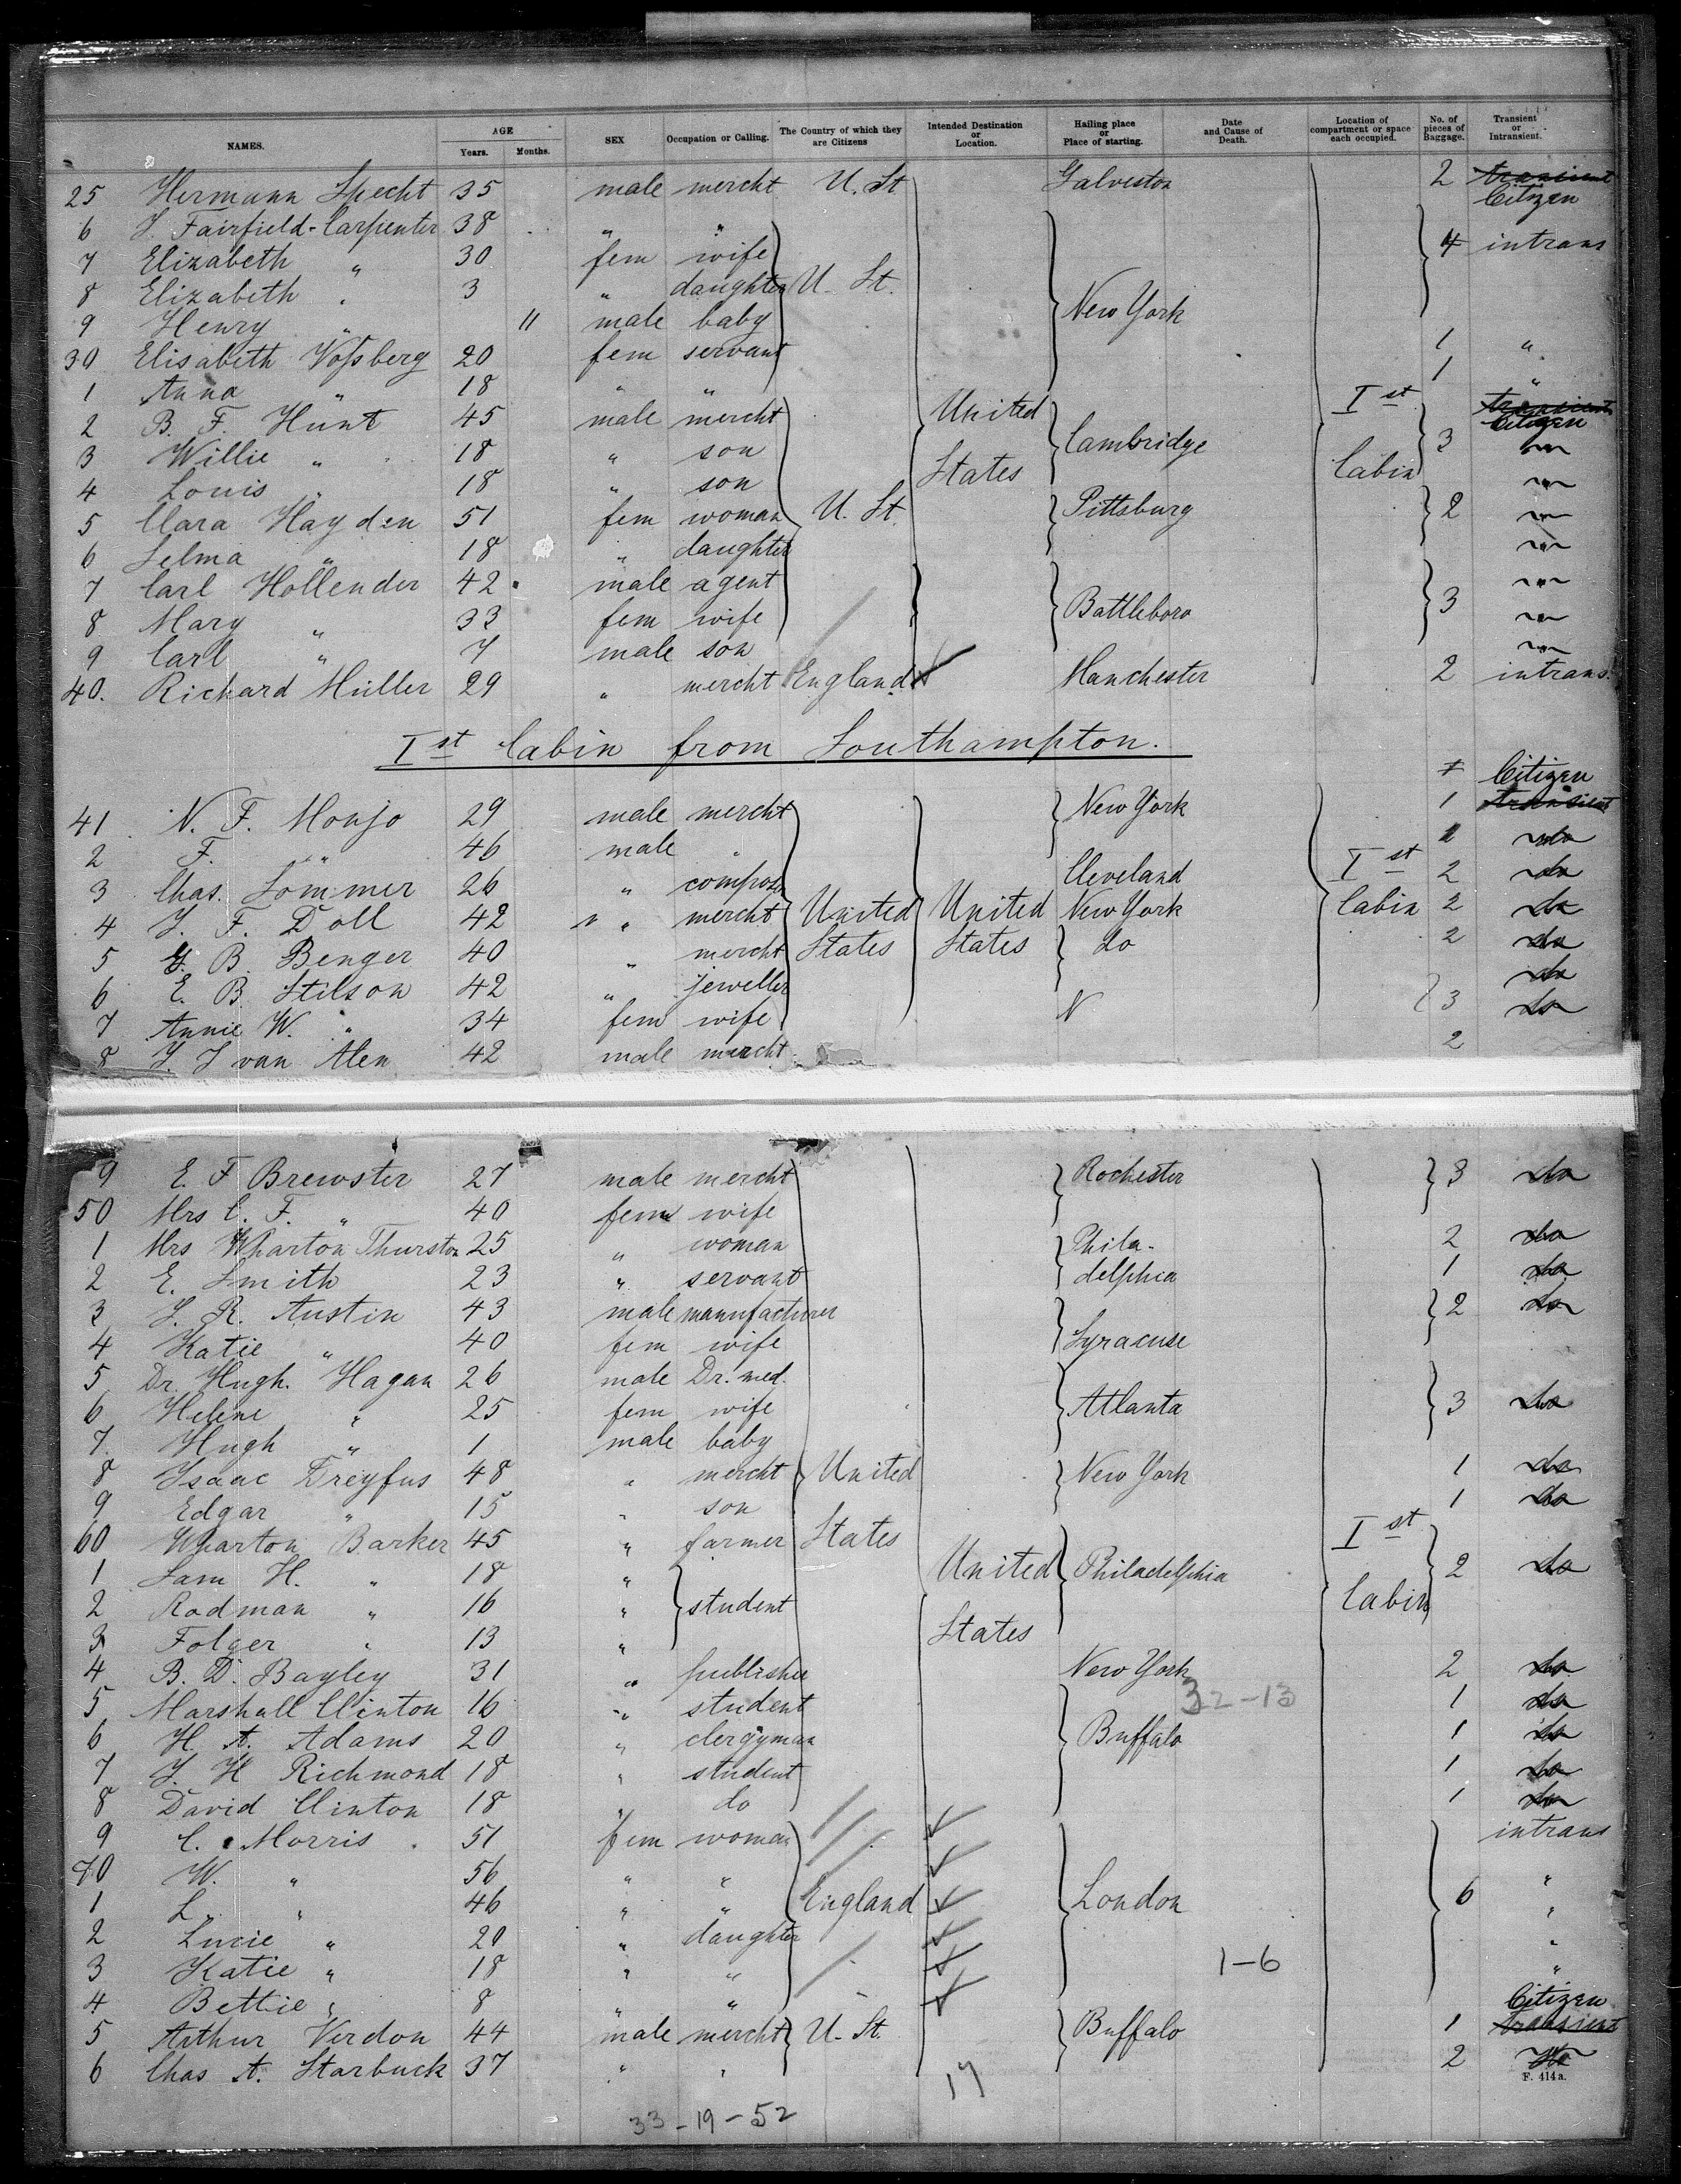 NAMES. AGE Years. Months. SEX Occupation or Calling. The Country of which they are Citizens Intended Destination or Location. Hailing place or Place of starting. Date and Cause of Death. Location of compartment or space each occupied. No. of pieces of Baggage. Transient or Intransient.
25 Hermann Specht 35 male mercht U. St Galveston 2 transient Citizen
6 J. Fairfield-Carpenter 38 " " 4 intrans
7 Elizabeth " 30 fem wife
8 Elizabeth " 3 " daughter U. St.
9 Henry " 11 male baby New York
30 Elisabeth Voßberg 20 fem servant 1 "
1 Anna " 18 " " 1 "
2 B. F. Hunt 45 male mercht United Ist transient Citizen
3 Willie " 18 " son Cambridge 3 "
4 Louis " 18 " son States Cabin "
5 Clara Hayden 51 fem woman U. St. Pittsburg 2 "
6 Selma " 18 " daughter "
7 Carl Hollender 42 male agent "
8 Mary " 33 fem wife Battleboro 3 "
9 Carl " 7 male son "
40. Richard Müller 29 " mercht England Manchester 2 intrans.
Ist Cabin from Southampton.
Citizen
41 N. F. Monjo 29 male mercht New York 1 transient
2 F. " 46 male " 1 do
3 Chas. Sommer 26 " compozr Cleveland Ist 2 do
4 J. F. Doll 42 " " mercht United United New York Cabin 2 do
5 G. B. Benger 40 " mercht States States do 2 do
6 E. B. Stilson 42 " jeweller do
7 Annie W. " 34 fem wife N 3 do
8 J. J van Alen 42 male mercht 2
9 E. F Brewster 27 male mercht Rochester 3 do
50 Mrs C. F. " 40 fem wife
1 Mrs Wharton Thurston 25 " woman Phila- 2 do
2 E. Smith 23 " servant delphia 1 do
3 J. R. Austin 43 male manufacturer 2 do
4 Katie " 40 fem wife Syracuse
5 Dr. Hugh. Hagan 26 male Dr. med.
6 Helene " 25 fem wife Atlanta 3 do
7. Hugh " 1 male baby
8 Isaac Dreyfus 48 " mercht United New York 1 do
9 Edgar " 15 " son 1 do
60 Wharton Barker 45 " farmer States Ist
1 Sam H. " 18 " United Philadelphia 2 do
2 Rodman " 16 " student Cabin
3 Folger " 13 " States
4 B. D. Bayley 31 " publisher New York 2 do
32-13
5 Marshall Clinton 16 " student 1 do
6 H. A. Adams 20 " clergyman Buffalo 1 do
7 J. H Richmond 18 " student 1 do
8 David Clinton 18 " do 1 do
9 C. Morris 51 fem woman intrans
70 W. " 56 " " "
1 L. " 46 " " England London 6 "
2 Lucie " 20 " daughter "
3 Katie " 18 " " 1-6 "
4 Bettie " 8 " " Citizen
5 Arthur Verdon 44 male mercht U. St. Buffalo 1 transient
6 Chas A. Starbuck 37 " " 2 do
F. 414a.
17
33-19-52